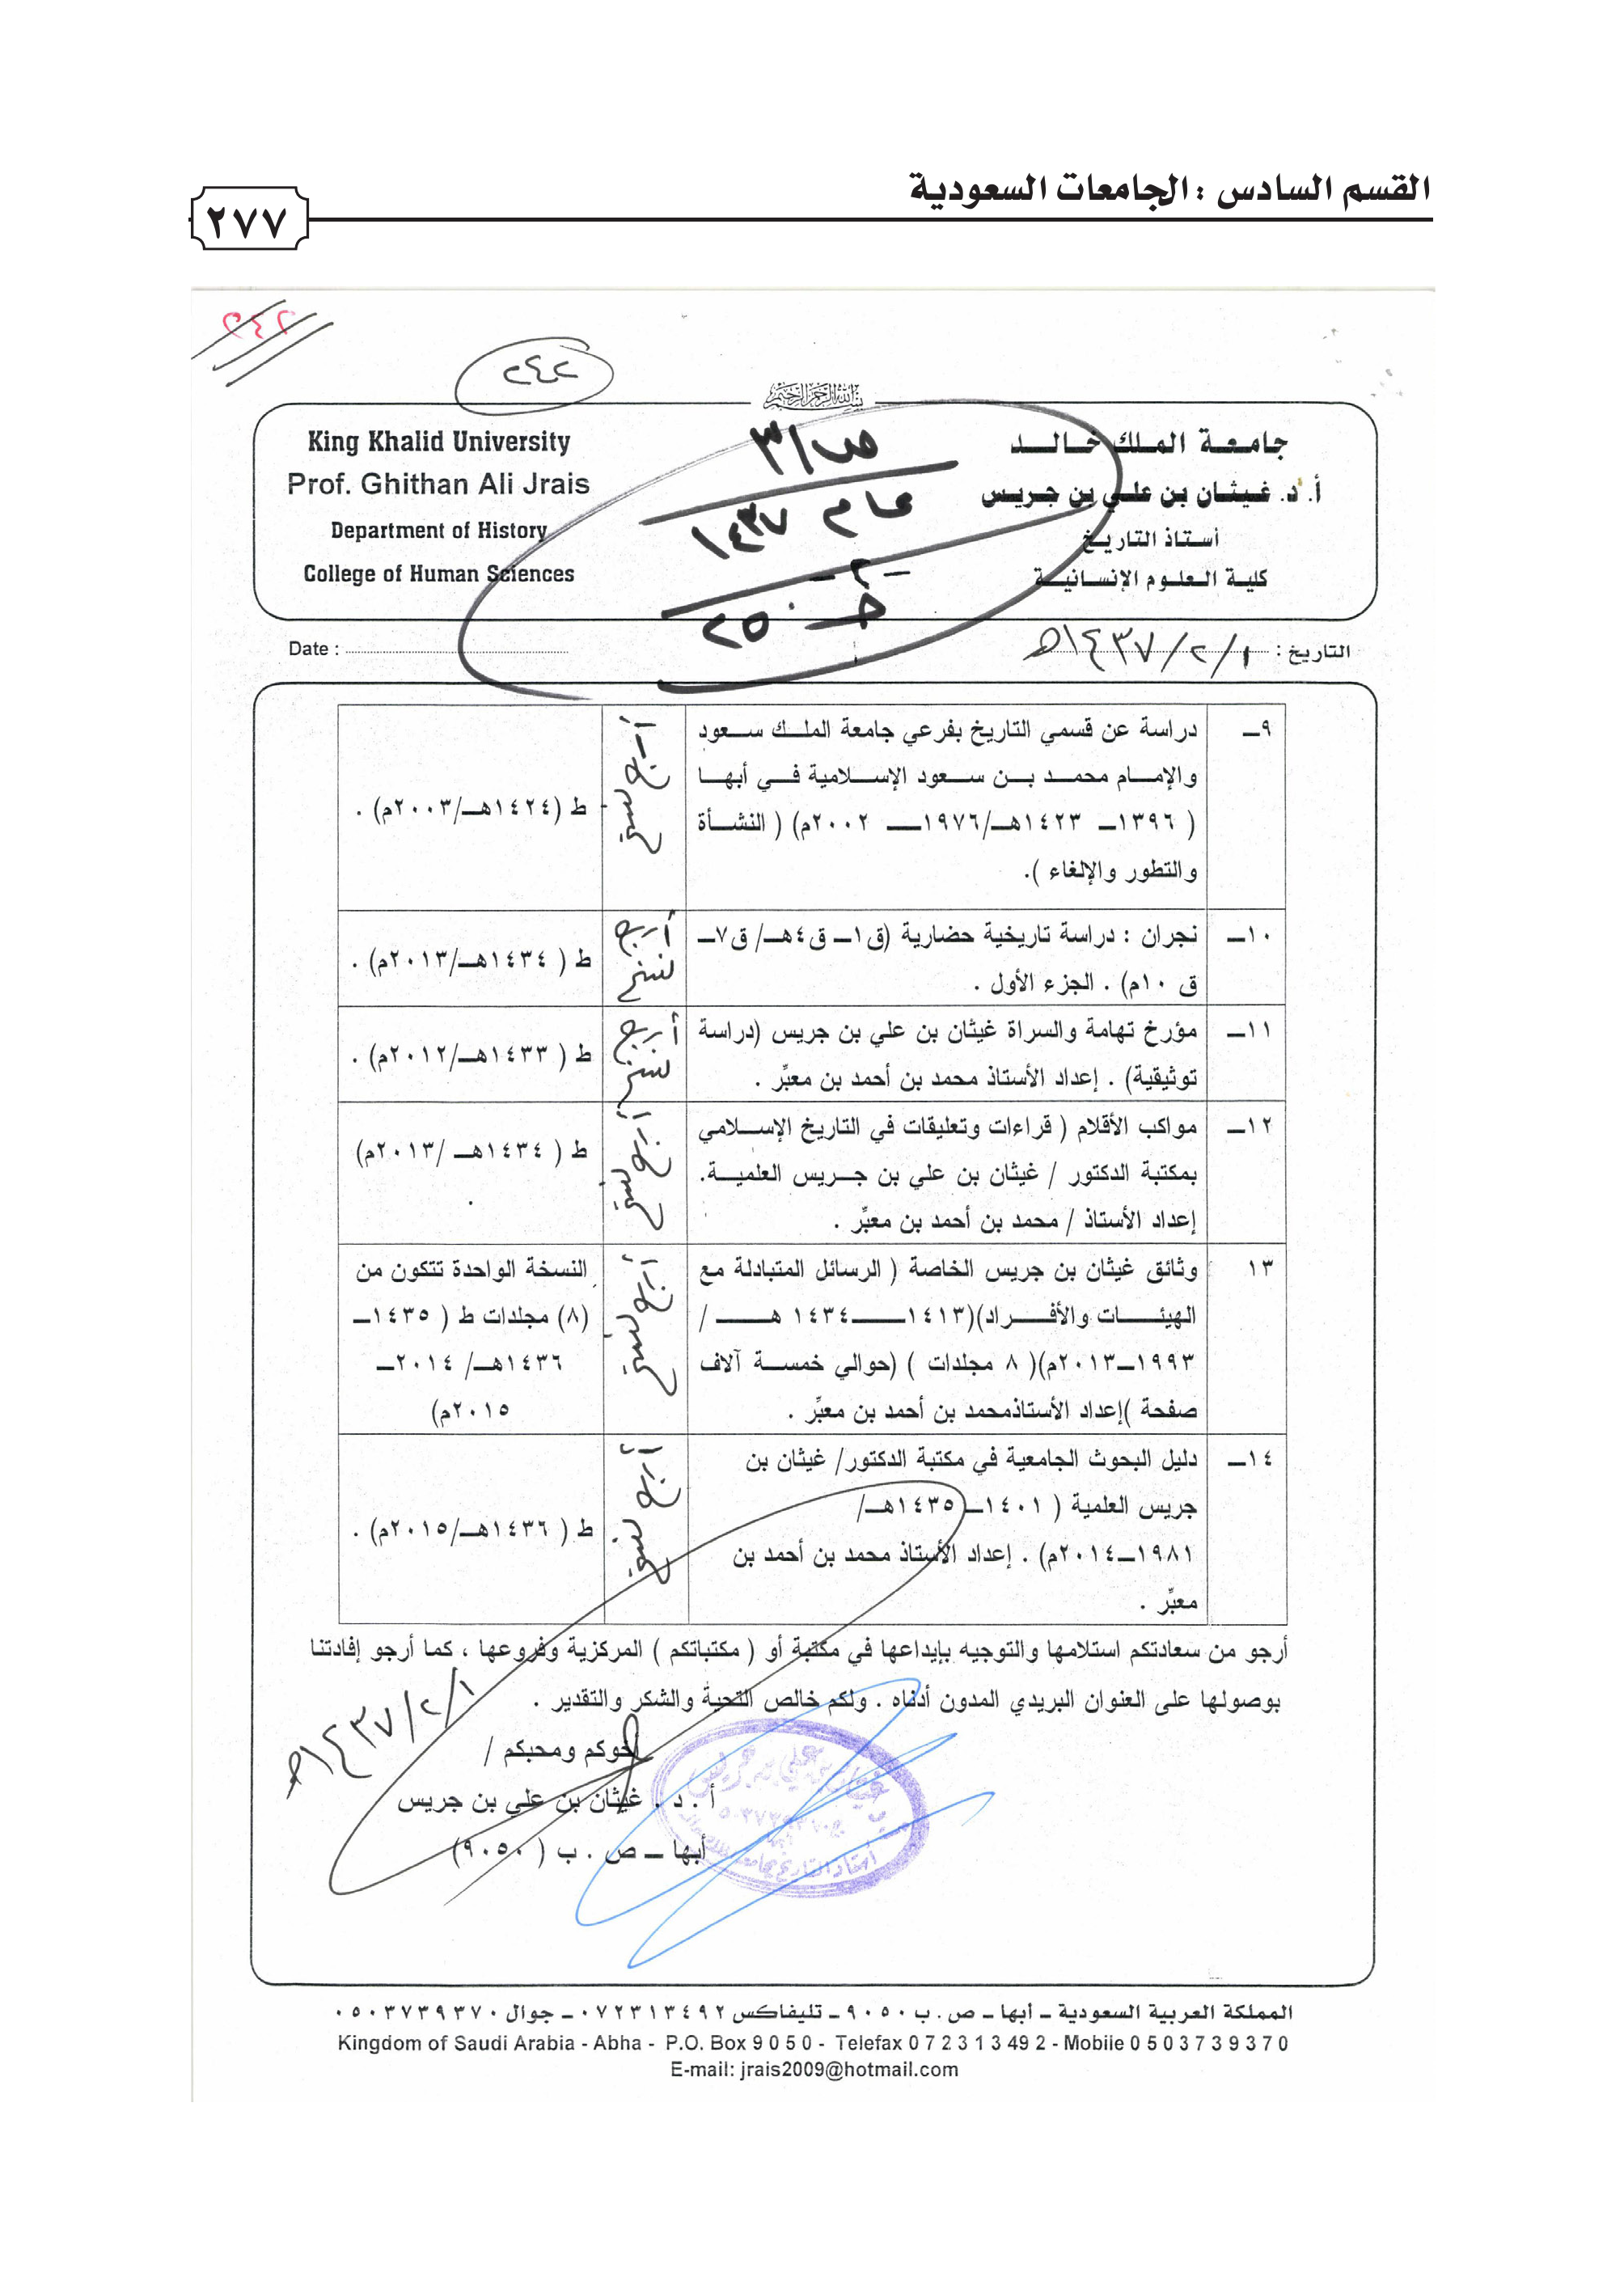 القسم السادس : الجامعات السعودية
٢٧٧
٢٤٢
٢٤٢
بسم الله الرحمن الرحيم
جامعة الملك خالد
أ.د. غيثان بن علي بن جريس
أستاذ التاريخ
كلية العلوم الإنسانية
King Khalid University
Prof. Ghithan Ali Jrais
Department of History
College of Human Sciences
ص/٣
عام ١٤٣٧
-٢-
حـ ٢٥٠
التاريخ : ١/٢/١٤٣٧هـ
Date :
٩ـ
دراسة عن قسمي التاريخ بفرعي جامعة الملك سعود
والإمام محمد بن سعود الإسلامية في أبها
( ١٣٩٦ـ ١٤٢٣هـ/١٩٧٦ـ ٢٠٠٢م) ( النشأة
والتطور والإلغاء ).
أربع نسخ
ط (١٤٢٤هـ/٢٠٠٣م) .
١٠ـ
نجران : دراسة تاريخية حضارية (ق١ـ ق٤هـ/ ق٧ـ
ق ١٠م) . الجزء الأول .
أربع نسخ
ط ( ١٤٣٤هـ/٢٠١٣م) .
١١ـ
مؤرخ تهامة والسراة غيثان بن علي بن جريس (دراسة
توثيقية) . إعداد الأستاذ محمد بن أحمد بن معبِّر .
أربع نسخ
ط ( ١٤٣٣هـ/٢٠١٢م) .
١٢ـ
مواكب الأقلام ( قراءات وتعليقات في التاريخ الإسلامي
بمكتبة الدكتور / غيثان بن علي بن جريس العلمية.
إعداد الأستاذ / محمد بن أحمد بن معبِّر .
أربع نسخ
ط ( ١٤٣٤هـ /٢٠١٣م)
.
١٣
وثائق غيثان بن جريس الخاصة ( الرسائل المتبادلة مع
الهيئات والأفراد)(١٤١٣ـ ١٤٣٤ هـ /
١٩٩٣ـ٢٠١٣م)( ٨ مجلدات ) (حوالي خمسة آلاف
صفحة )إعداد الأستاذمحمد بن أحمد بن معبِّر .
أربع نسخ
النسخة الواحدة تتكون من
(٨) مجلدات ط ( ١٤٣٥ـ
١٤٣٦هـ/ ٢٠١٤ـ
٢٠١٥م)
١٤ـ
دليل البحوث الجامعية في مكتبة الدكتور/ غيثان بن
جريس العلمية ( ١٤٠١ـ ١٤٣٥هـ/
١٩٨١ـ٢٠١٤م) . إعداد الأستاذ محمد بن أحمد بن
معبِّر .
أربع نسخ
ط ( ١٤٣٦هـ/٢٠١٥م) .
أرجو من سعادتكم استلامها والتوجيه بإيداعها في مكتبة أو ( مكتباتكم ) المركزية وفروعها ، كما أرجو إفادتنا
بوصولها على العنوان البريدي المدون أدناه . ولكم خالص التحية والشكر والتقدير .
١/٢/١٤٣٧هـ
أخوكم ومحبكم /
أ . د . غيثان بن علي بن جريس
أبها ـ ص . ب ( ٩٠٥٠)
المملكة العربية السعودية ـ أبها ـ ص . ب ٩٠٥٠ ـ تليفاكس ٠٧٢٣١٣٤٩٢ ـ جوال ٠٥٠٣٧٣٩٣٧٠
Kingdom of Saudi Arabia - Abha - P.O. Box 9 0 5 0 - Telefax 0 7 2 3 1 3 49 2 - Mobile 0 5 0 3 7 3 9 3 7 0
E-mail: jrais2009@hotmail.com